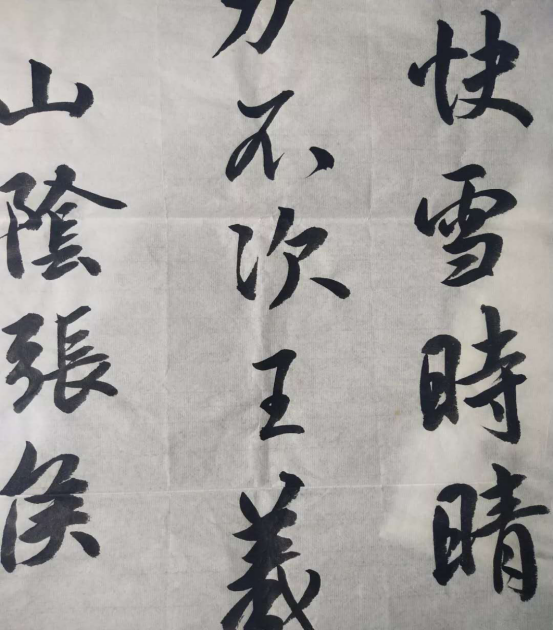 快雪時晴
力不次王羲
山陰張侯